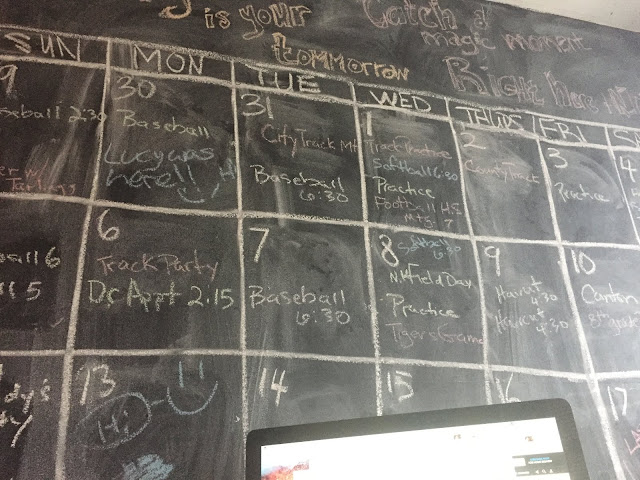 is your
tommorrow
Catch a
magic moment
Right here
SUN MON TUE WED THURS FRI
9
Baseball 2:30
30
Baseball
Lucy was
here!! Hi
31
City Track Mt
Baseball
6:30
1
Track Practice
Softball 6:30
Practice
Football H.S
Mtg 7
2
County Track
3
Practice
4
6
Track Party
Dr Appt 2:15
7
Baseball
6:30
8 Softball
6:30
N.Y Field Day
Practice
Tigers Game
9
Haircut
4:30
Haircut
4:30
10
Canton
8th grade
13
Hi
14
15
16
17